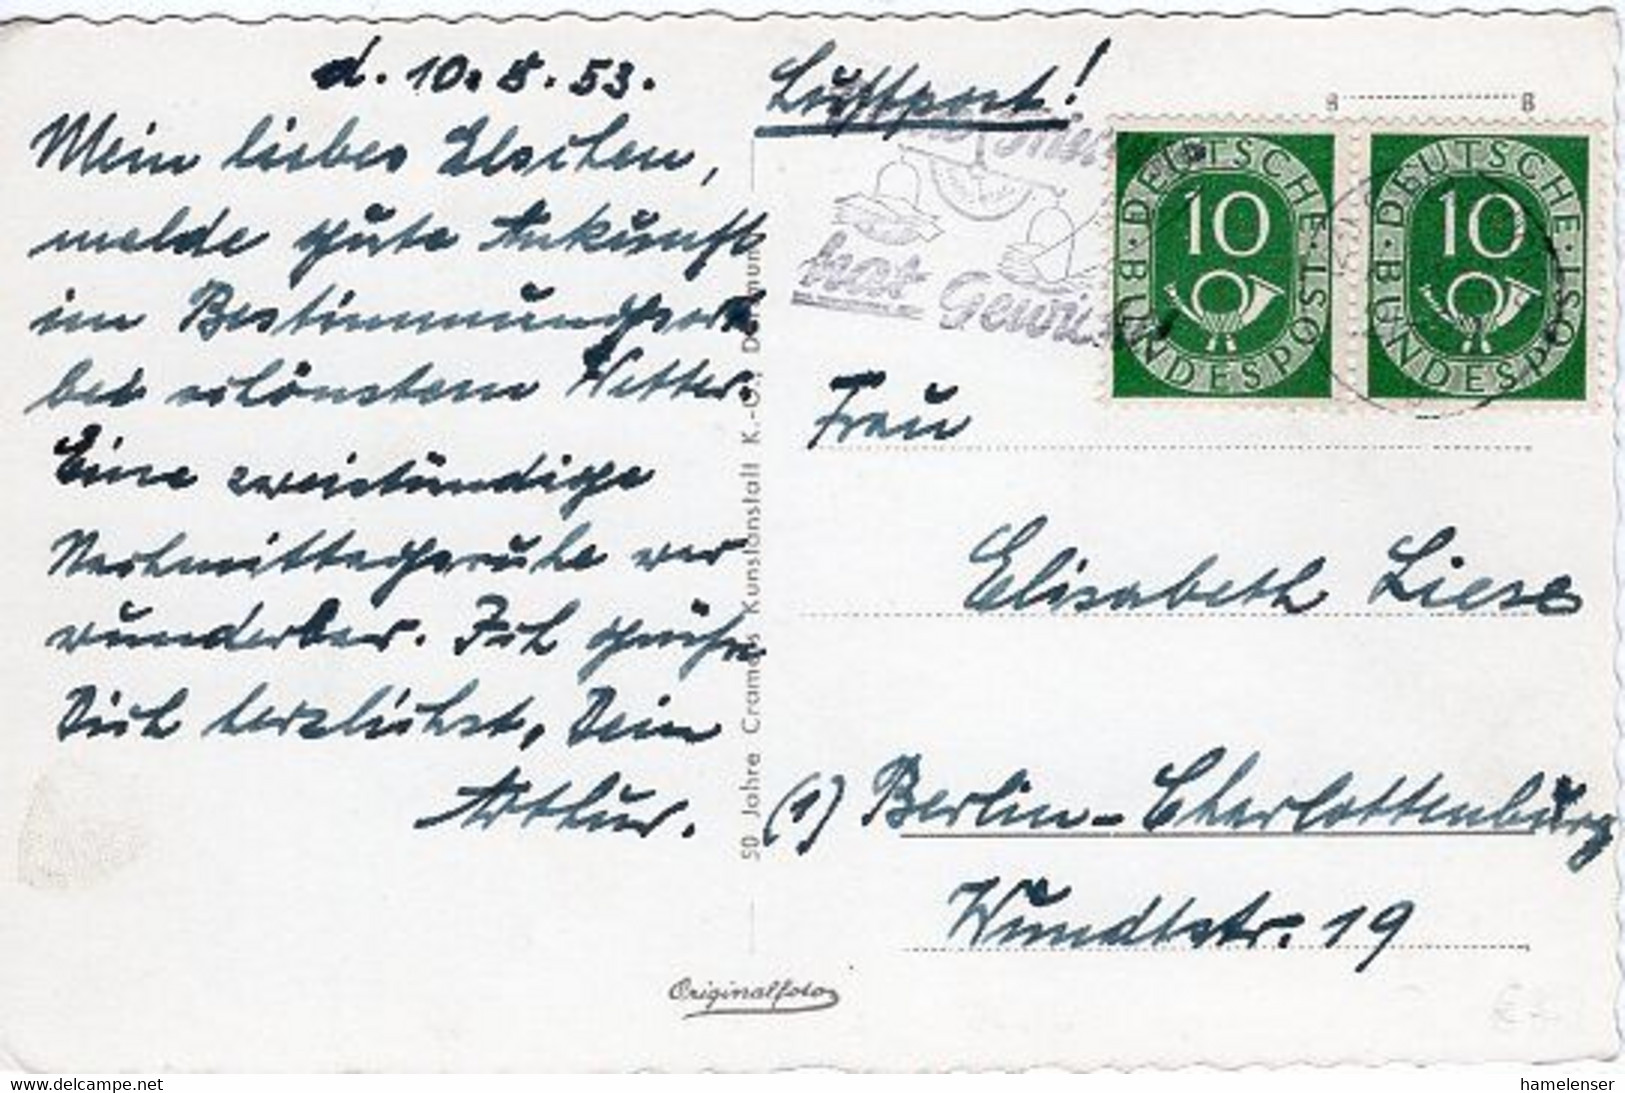 d. 10. 8. 53.
Mein liebes Elschen,
melde gute Ankunft
im Bestimmungsort
bei schönstem Wetter.
Eine zweistündige
Nachmittagsruhe war
wunderbar. Ich grüße
Dich herzlichst, Dein
Arthur.
50 Jahre Cramers Kunstanstalt K.-G., Dortmund
Luftpost!
hat Gewicht
8 8
DEUTSCHE BUNDESPOST
10
DEUTSCHE BUNDESPOST
10
Frau
Elisabeth Liese
(1) Berlin-Charlottenburg
Wundtstr. 19
Originalfoto
www.delcampe.net
hamelenser